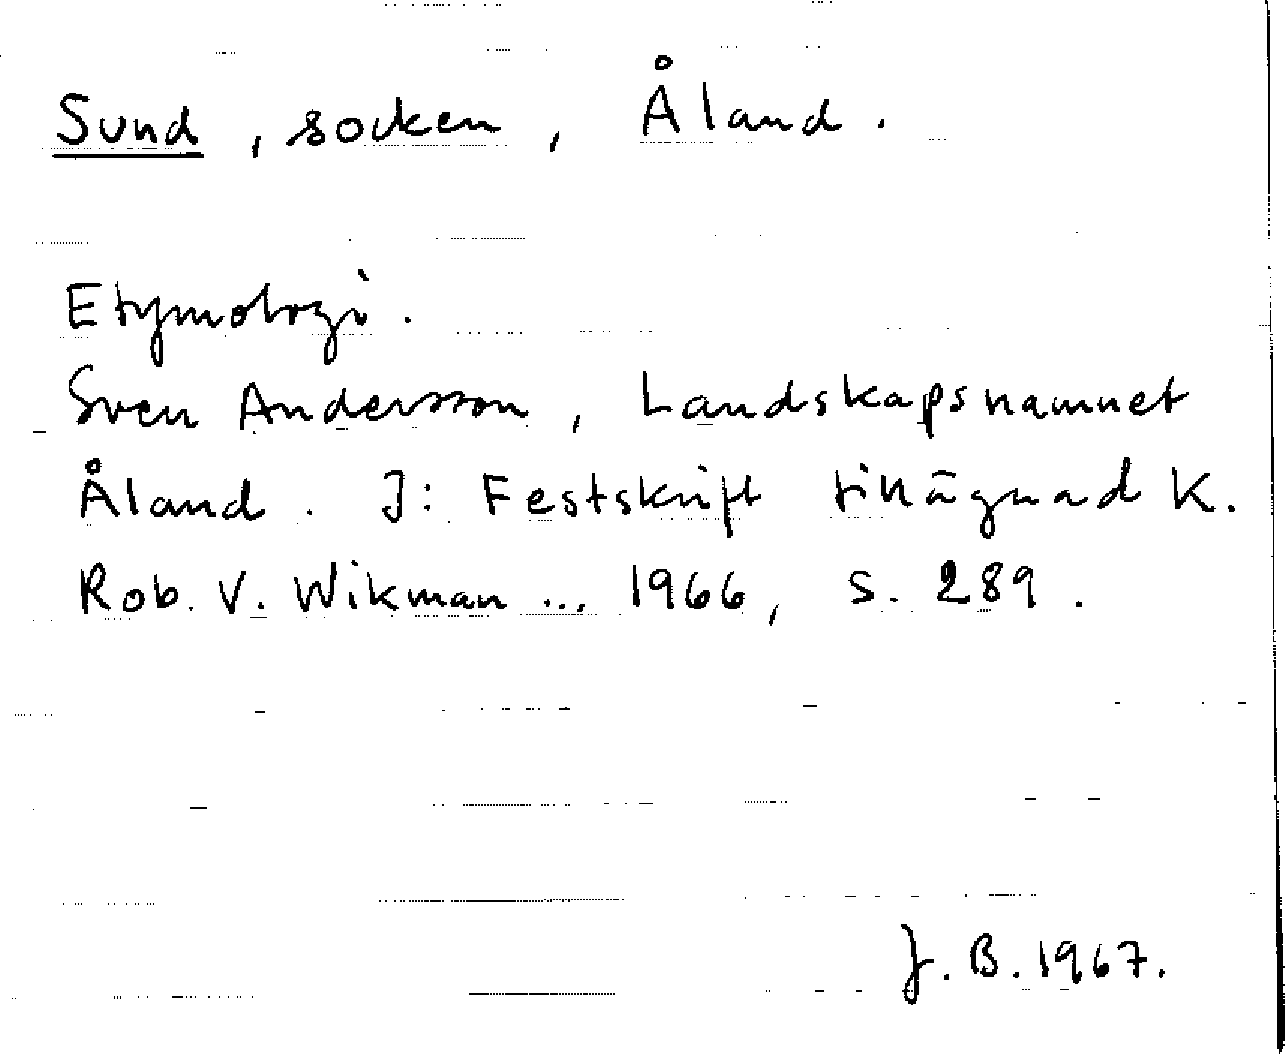 Sund, socken, Åland.
Etymologi.
Sven Andersson, Landskapsnamnet
Åland. I: Festskrift tillägnad K.
Rob. V. Wikman ... 1966, s. 289.
J. B. 1967.